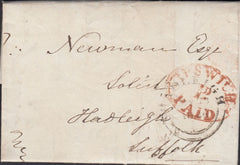 Newman Esq
Solr
Hadleigh
Suffolk
IPSWICH
PAID